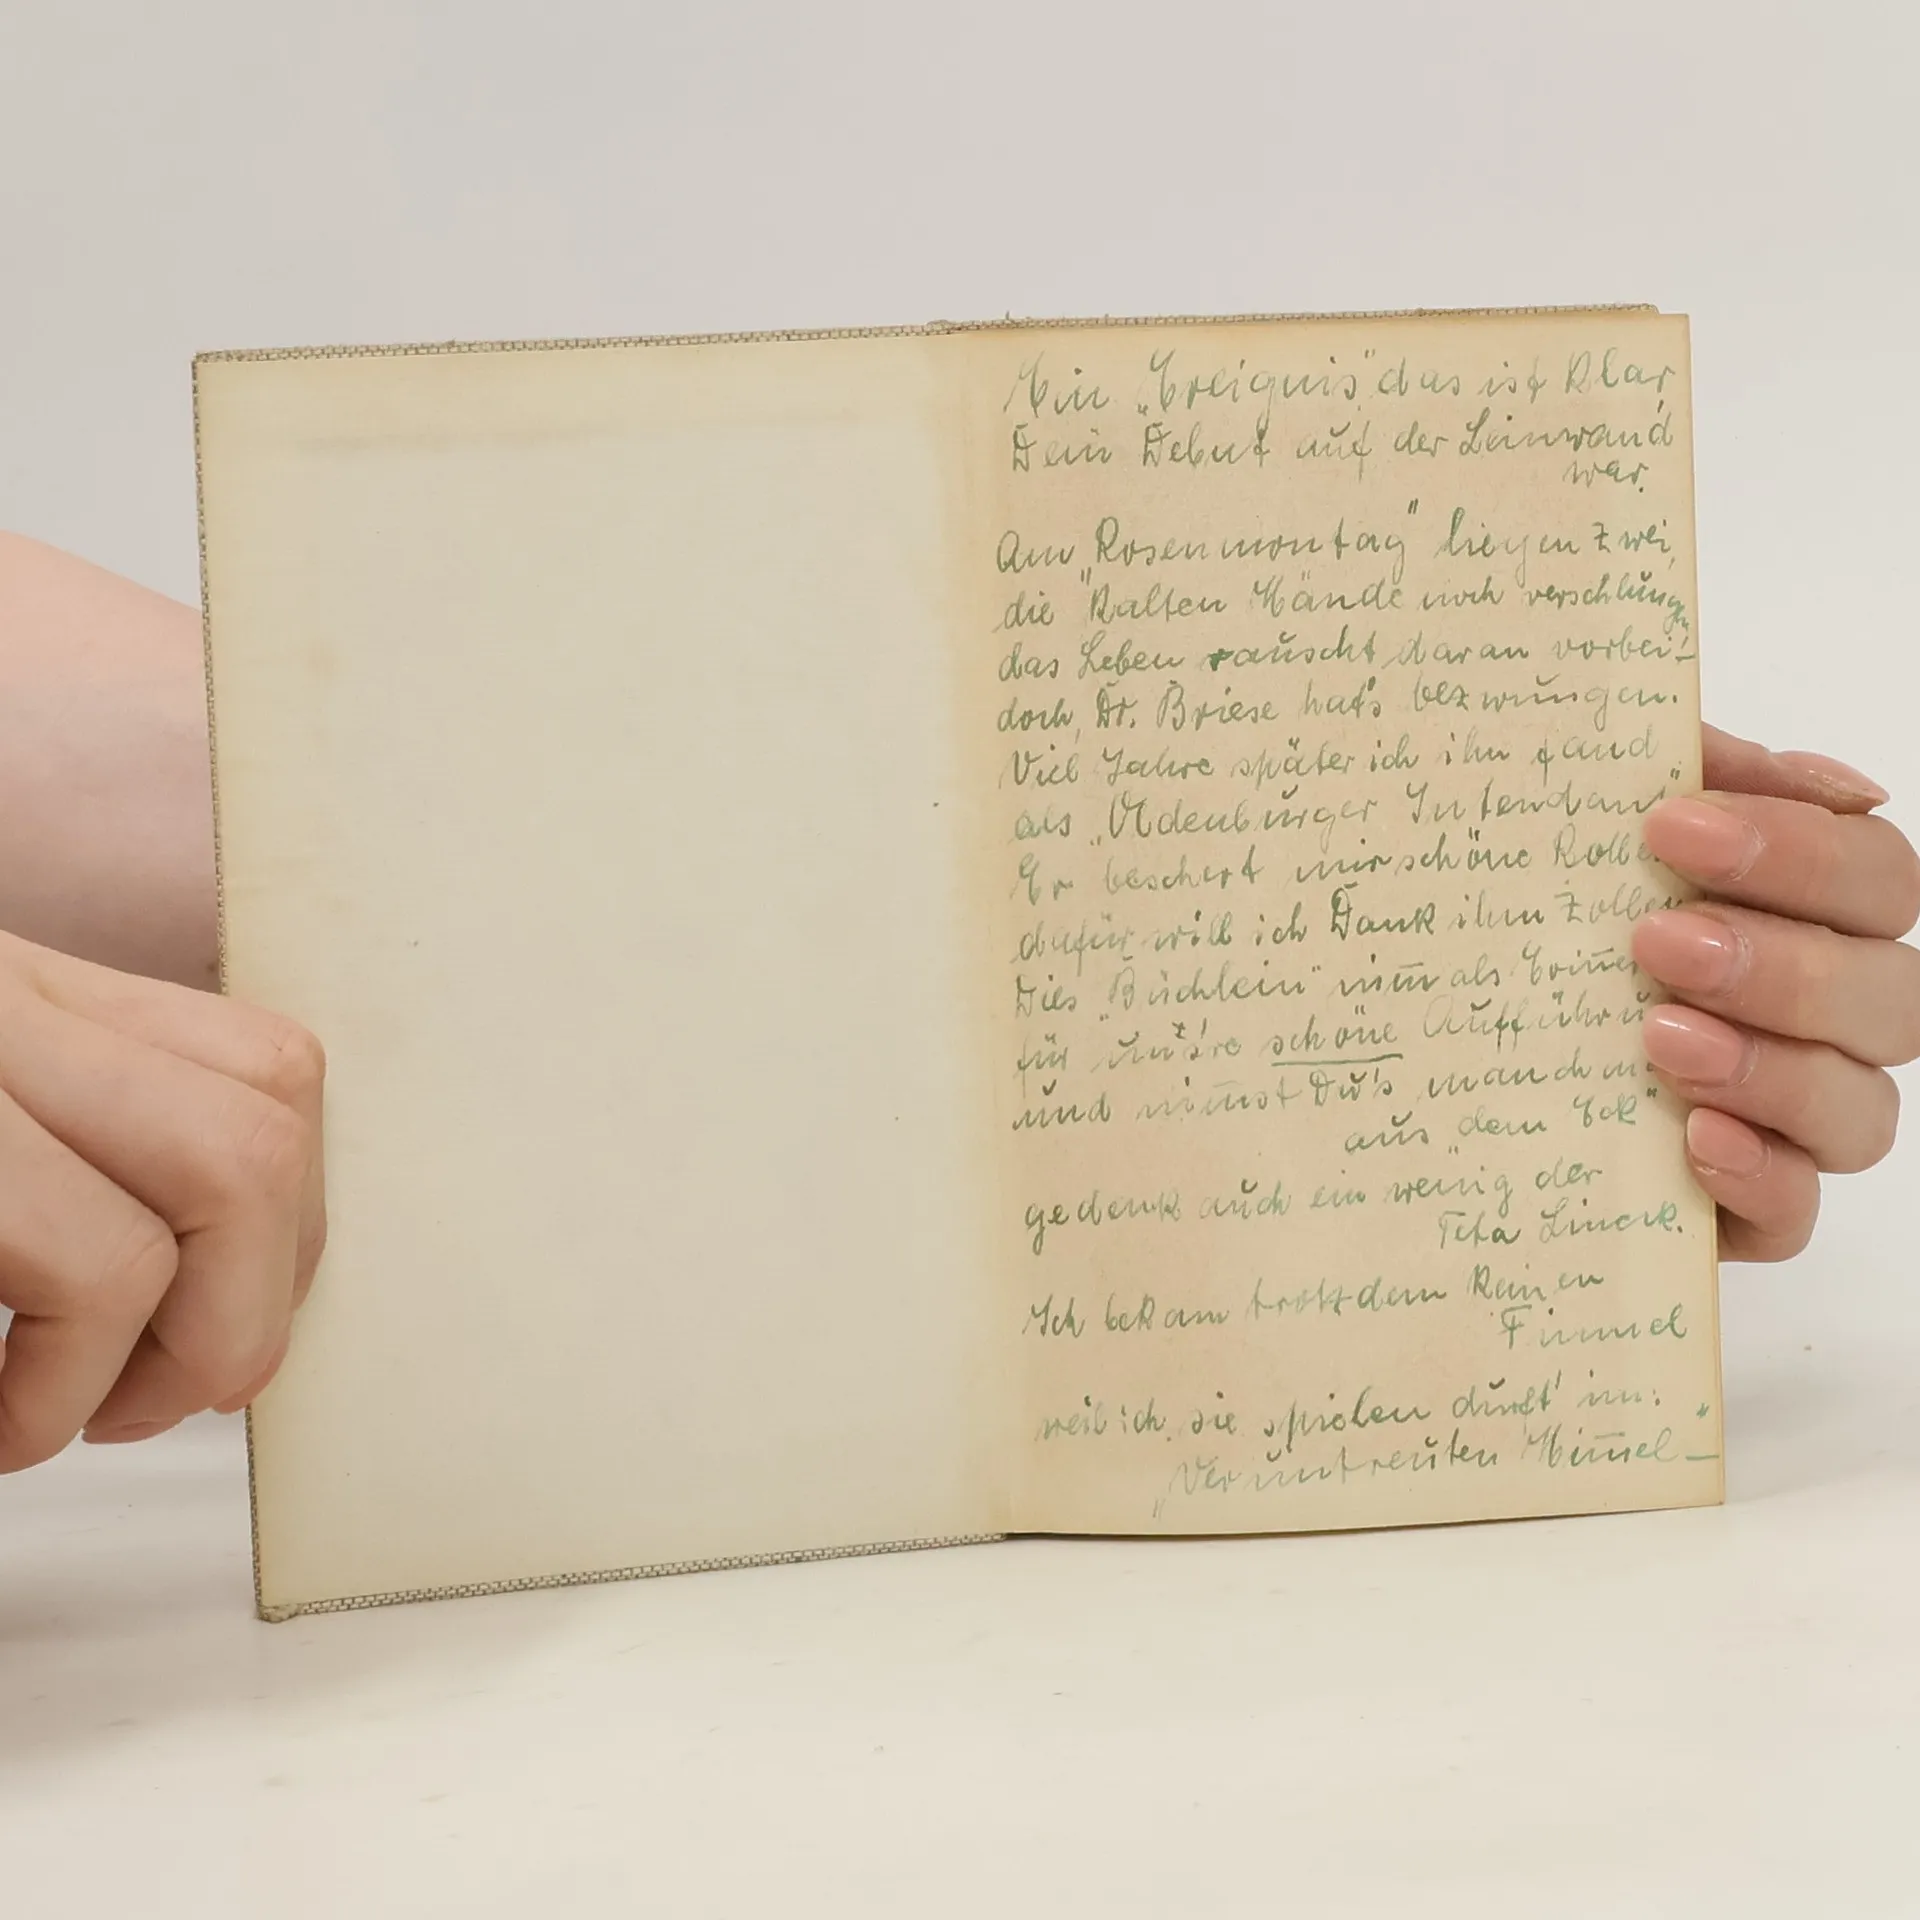 Ein „Ereignis" das ist klar,
Dein Debut auf der Leinwand
war.
Am „Rosenmontag" liegen zwei,
die "kalten Hände noch verschlungen
das Leben rauscht daran vorbei! –
doch, Dr. Briese hat's bezwungen.
Viel Jahre später ich ihn fand
als „Oldenburger Intendant"
Er beschert mir schöne Rollen
dafür will ich Dank ihm zollen
Dies „Büchlein" nim̅ als
für unsre schöne
und nim̅st Du's
aus „dem Eck"
gedenk auch ein wenig der
Teta Linerk.
Ich bekam trotzdem keinen
Fimmel
weil ich sie spielen durft' im:
„Veruntreuten Him̅el" –